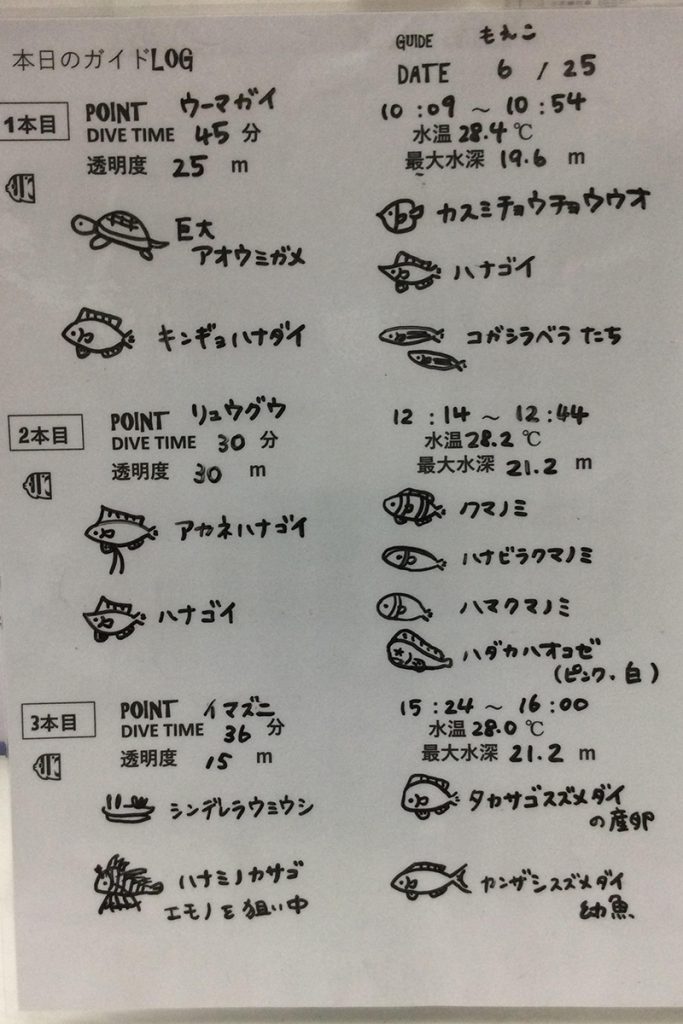 本日のガイドLOG
GUIDE もえこ
DATE 6 / 25
1本目
POINT ウーマガイ
10:09 ~ 10:54
DIVE TIME 45 分
水温 28.4 ℃
透明度 25 m
最大水深 19.6 m
巨大
アオウミガメ
カスミチョウチョウウオ
ハナゴイ
キンギョハナダイ
コガシラベラ たち
2本目
POINT リュウグウ
12:14 ~ 12:44
DIVE TIME 30 分
水温 28.2 ℃
透明度 30 m
最大水深 21.2 m
アカネハナゴイ
クマノミ
ハナビラクマノミ
ハナゴイ
ハマクマノミ
ハダカハオコゼ
(ピンク、白)
3本目
POINT イマズニ
15:24 ~ 16:00
DIVE TIME 36 分
水温 28.0 ℃
透明度 15 m
最大水深 21.2 m
シンデレラウミウシ
タカサゴスズメダイ
の産卵
ハナミノカサゴ
エモノを狙い中
カンザシスズメダイ
幼魚